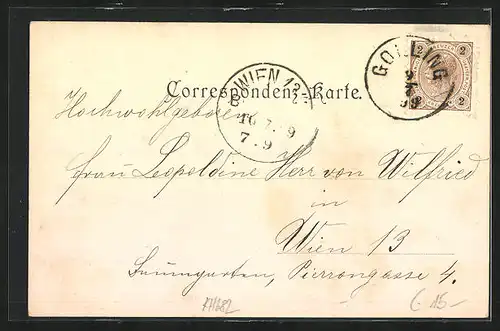 2 KREUZER 2
2 2
GOLLING
9/7
99
WIEN 13
10.7.99
7.9
Correspondenz-Karte.
Hochwohlgeboren
Frau Leopoldine Herr von Wilfried
in
Wien 13
Baumgarten, Pierrongasse 4.
€ 15-